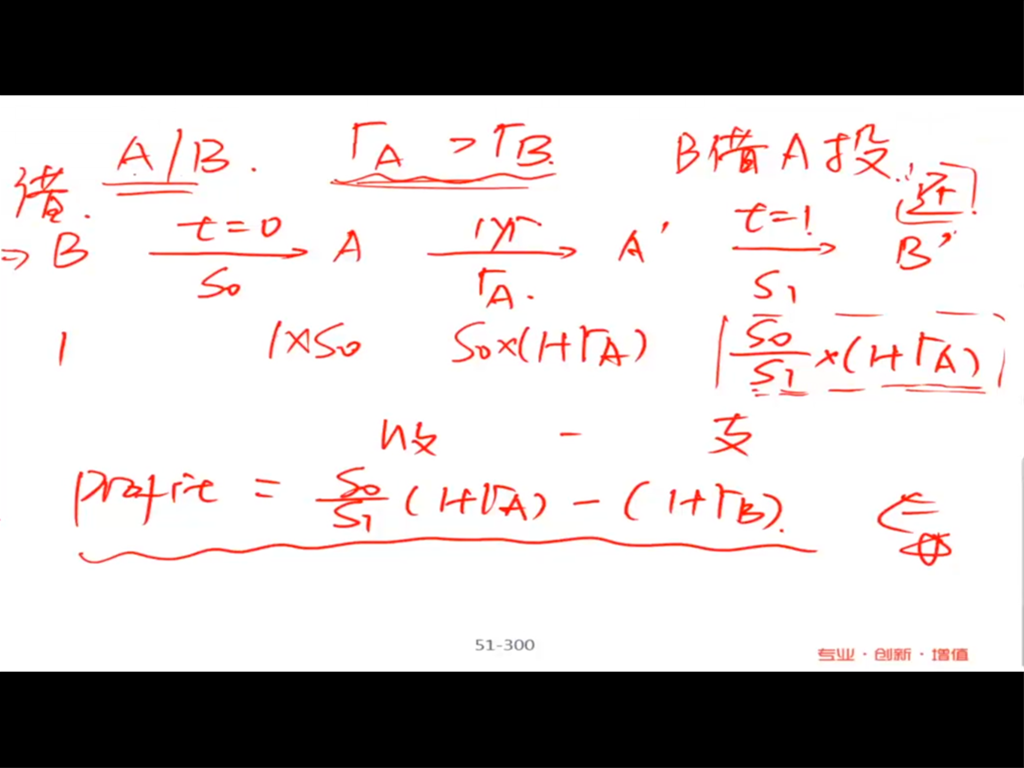 A/B. r_A > r_B. B借A投.
借. 还!
⇒ B t=0 S_0 A 1yr r_A. A' t=1 S_1 B'
1 1×S_0 S_0×(1+r_A) S_0/S_1×(1+r_A)
收 - 支
profit = S_0/S_1 (1+r_A) - (1+r_B).
51-300
专业·创新·增值